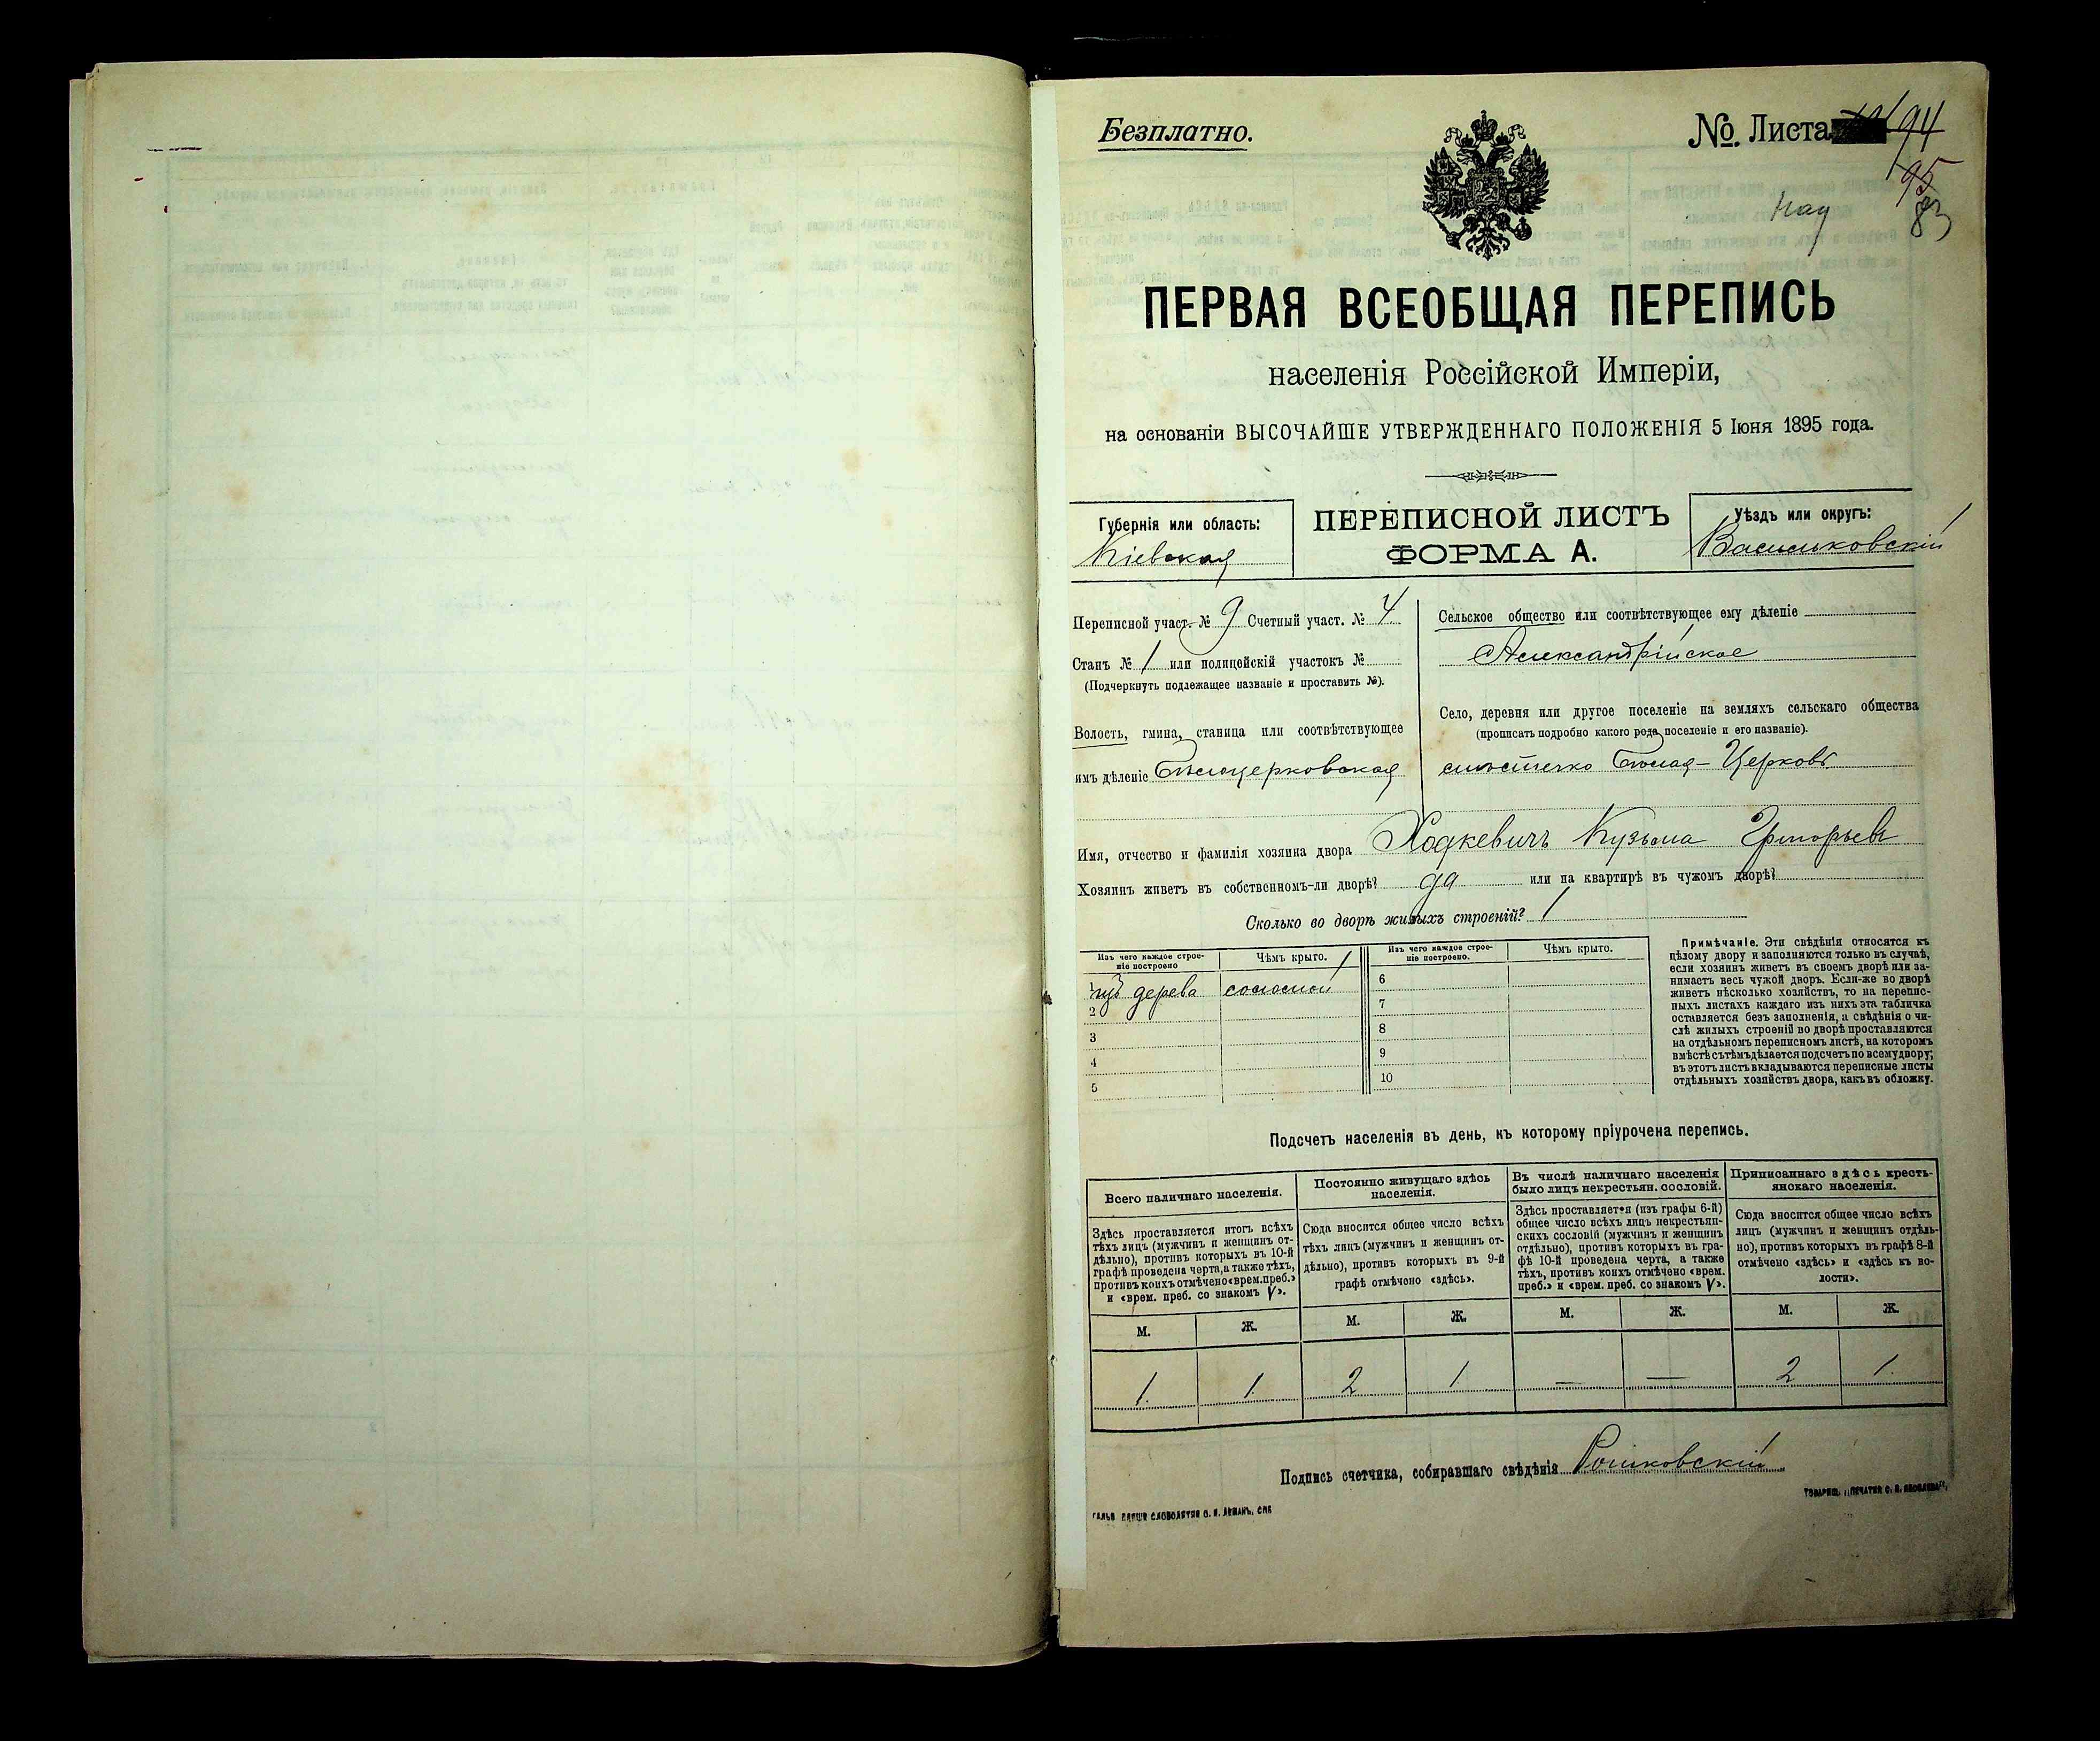 Безплатно.
№. Листа 94
95
83
ПЕРВАЯ ВСЕОБЩАЯ ПЕРЕПИСЬ
населенія Россійской Имперіи,
на основаніи ВЫСОЧАЙШЕ УТВЕРЖДЕННАГО ПОЛОЖЕНІЯ 5 Іюня 1895 года.
Губернія или область:
Кіевская
ПЕРЕПИСНОЙ ЛИСТЪ
ФОРМА А.
Уѣздъ или округъ:
Васильковскій
Переписной участ. № 9 Счетный участ. № 4
Станъ № 1 или полицейскій участокъ №
(Подчеркнуть подлежащее названіе и проставить №).
Волость, гмина, станица или соотвѣтствующее
имъ дѣленіе Бѣлоцерковская
Сельское общество или соотвѣтствующее ему дѣленіе
Александрійское
Село, деревня или другое поселеніе на земляхъ сельскаго общества
(прописать подробно какого рода поселеніе и его названіе).
мѣстечко Бѣлая-Церковь
Имя, отчество и фамилія хозяина двора Ходкевичъ Кузьма Григорьевъ
Хозяинъ живетъ въ собственномъ-ли дворѣ? да или на квартирѣ въ чужомъ дворѣ?
Сколько во дворѣ жилыхъ строеній? 1
Изъ чего каждое строе-
ніе построено
Чѣмъ крыто.
Изъ чего каждое строе-
ніе построено.
Чѣмъ крыто.
1 изъ дерева соломой
2
3
4
5
6
7
8
9
10
Примѣчаніе. Эти свѣдѣнія относятся къ
цѣлому двору и заполняются только въ случаѣ,
если хозяинъ живетъ въ своемъ дворѣ или за-
нимаетъ весь чужой дворъ. Если-же во дворѣ
живетъ нѣсколько хозяйствъ, то на перепис-
ныхъ листахъ каждаго изъ нихъ эта табличка
оставляется безъ заполненія, а свѣдѣнія о чи-
слѣ жилыхъ строеній во дворѣ проставляются
на отдѣльномъ переписномъ листѣ, на которомъ
вмѣстѣ съ тѣмъ дѣлается подсчетъ по всему двору;
въ этотъ листъ вкладываются переписные листы
отдѣльныхъ хозяйствъ двора, какъ въ обложку.
Подсчетъ населенія въ день, къ которому пріурочена перепись.
Всего наличнаго населенія.
Постоянно живущаго здѣсь
населенія.
Въ числѣ наличнаго населенія
было лицъ некрестьян. сословій.
Приписаннаго здѣсь кресть-
янскаго населенія.
Здѣсь проставляется итогъ всѣхъ
тѣхъ лицъ (мужчинъ и женщинъ от-
дѣльно), противъ которыхъ въ 10-й
графѣ проведена черта, а также тѣхъ,
противъ коихъ отмѣчено «врем. преб.»
и «врем. преб. со знакомъ V».
Сюда вносится общее число всѣхъ
тѣхъ лицъ (мужчинъ и женщинъ от-
дѣльно), противъ которыхъ въ 9-й
графѣ отмѣчено «здѣсь».
Здѣсь проставляется (изъ графы 6-й)
общее число всѣхъ лицъ некрестьян-
скихъ сословій (мужчинъ и женщинъ
отдѣльно), противъ которыхъ въ гра-
фѣ 10-й проведена черта, а также
тѣхъ, противъ коихъ отмѣчено «врем.
преб.» и «врем. преб. со знакомъ V».
Сюда вносится общее число всѣхъ
лицъ (мужчинъ и женщинъ отдѣль-
но), противъ которыхъ въ графѣ 8-й
отмѣчено «здѣсь» и «здѣсь къ во-
лости».
М. Ж. М. Ж. М. Ж. М. Ж.
1. 1. 2 1 — — 2 1.
Подпись счетчика, собиравшаго свѣдѣнія